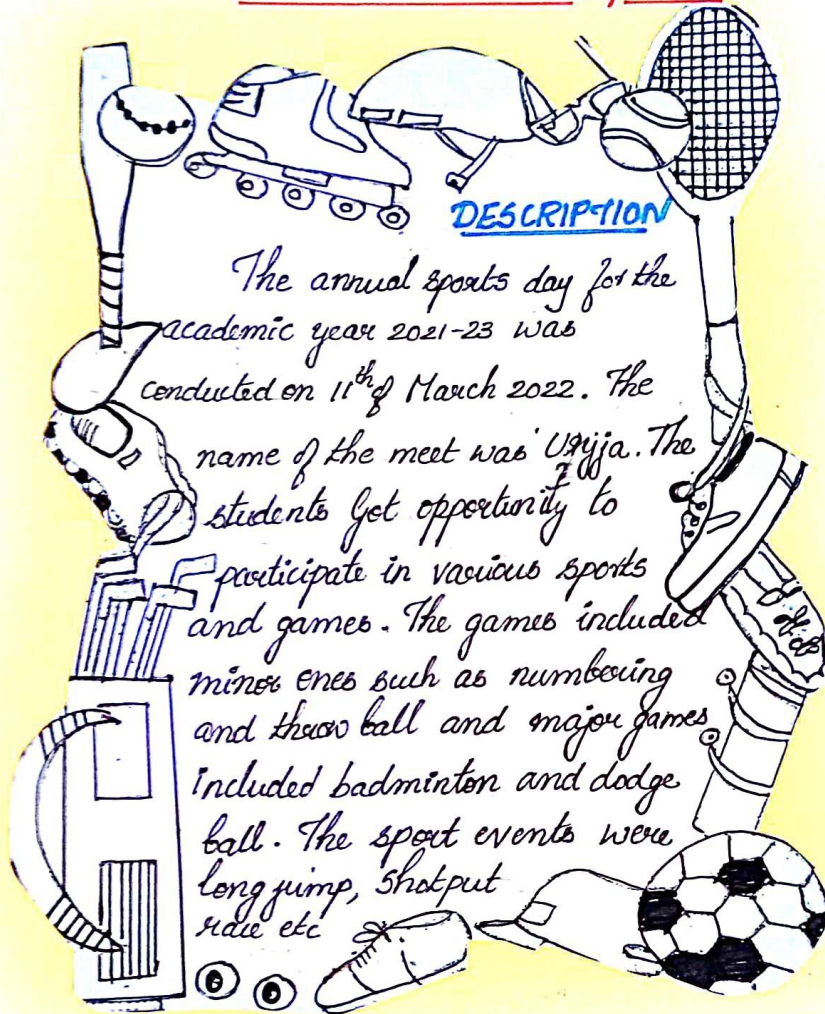 DESCRIPTION
The annual sports day for the
academic year 2021-23 was
conducted on 11th of March 2022. The
name of the meet was' Urjja. The
students Got opportunity to
participate in various sports
and games. The games included
minor ones such as numbering
and throw ball and major games
included badminton and dodge
ball. The sport events were
long jump, Shotput
race etc